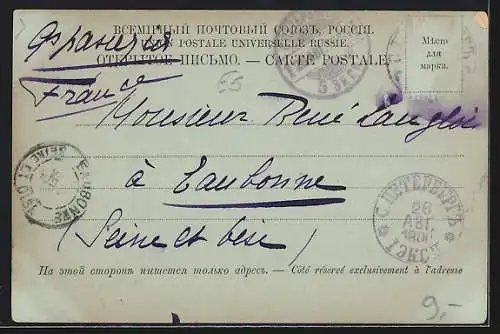 ВСЕМІРНЫЙ ПОЧТОВЫЙ СОЮЗЪ. РОССІЯ.
UNION POSTALE UNIVERSELLE RUSSIE.
ОТКРЫТОЕ ПИСЬМО. — CARTE POSTALE.
Мѣсто
для
марки.
France
55
5 ЭКСП
Monsieur René Langlois
à Eaubonne
(Seine et Oise)
EAUBONNE
SEINE ET OISE
С.ПЕТЕРБУРГЪ
26
АВГ.
1 ЭКСП.
На этой сторонѣ пишется только адресъ. — Côté réservé exclusivement à l'adresse
9,-